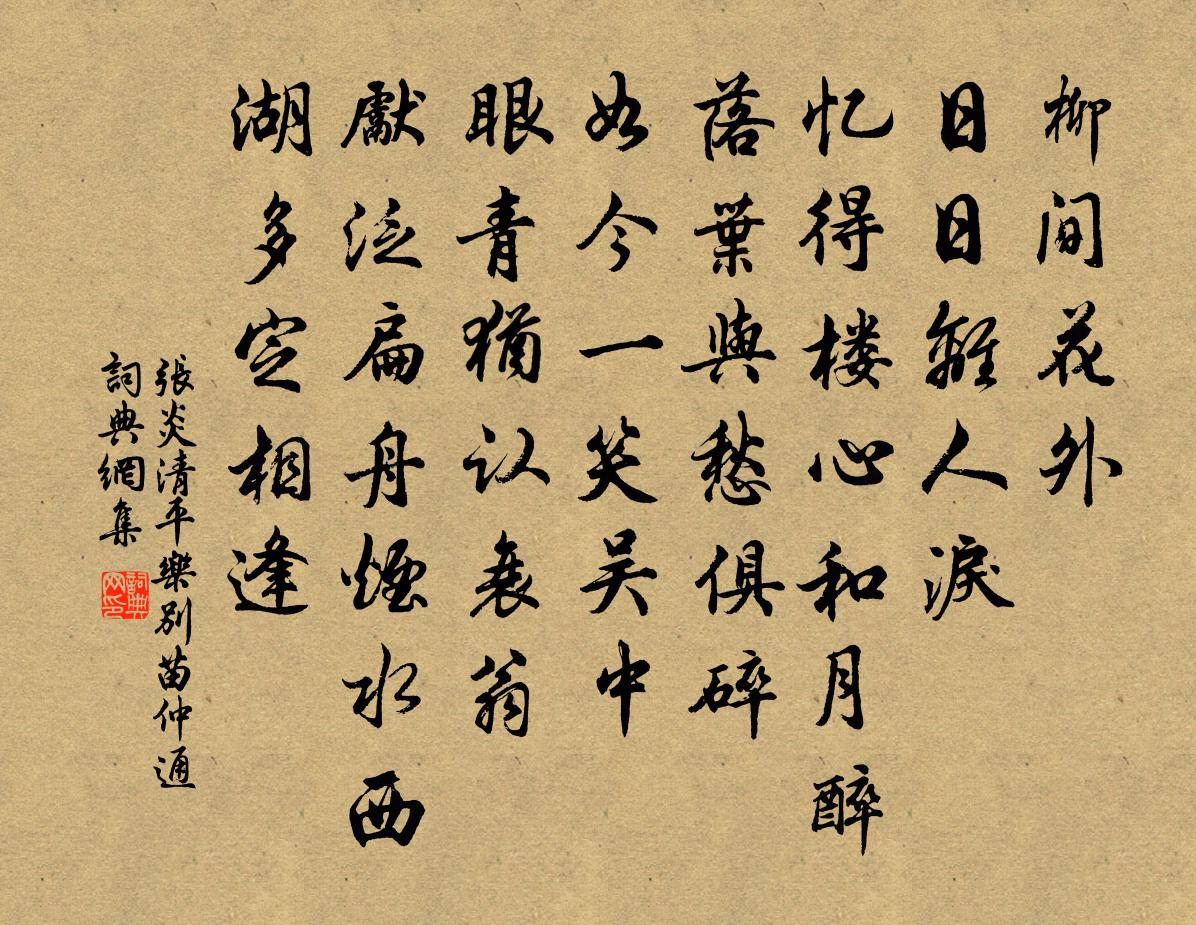 柳间花外
日日離人淚
忆得楼心和月醉
落葉與愁俱碎
如今一笑吴中
眼青猶认衰翁
獻泛扁舟煙水西
湖多定相逢
張炎清平樂别苗仲通
詞典網集
詞典网印